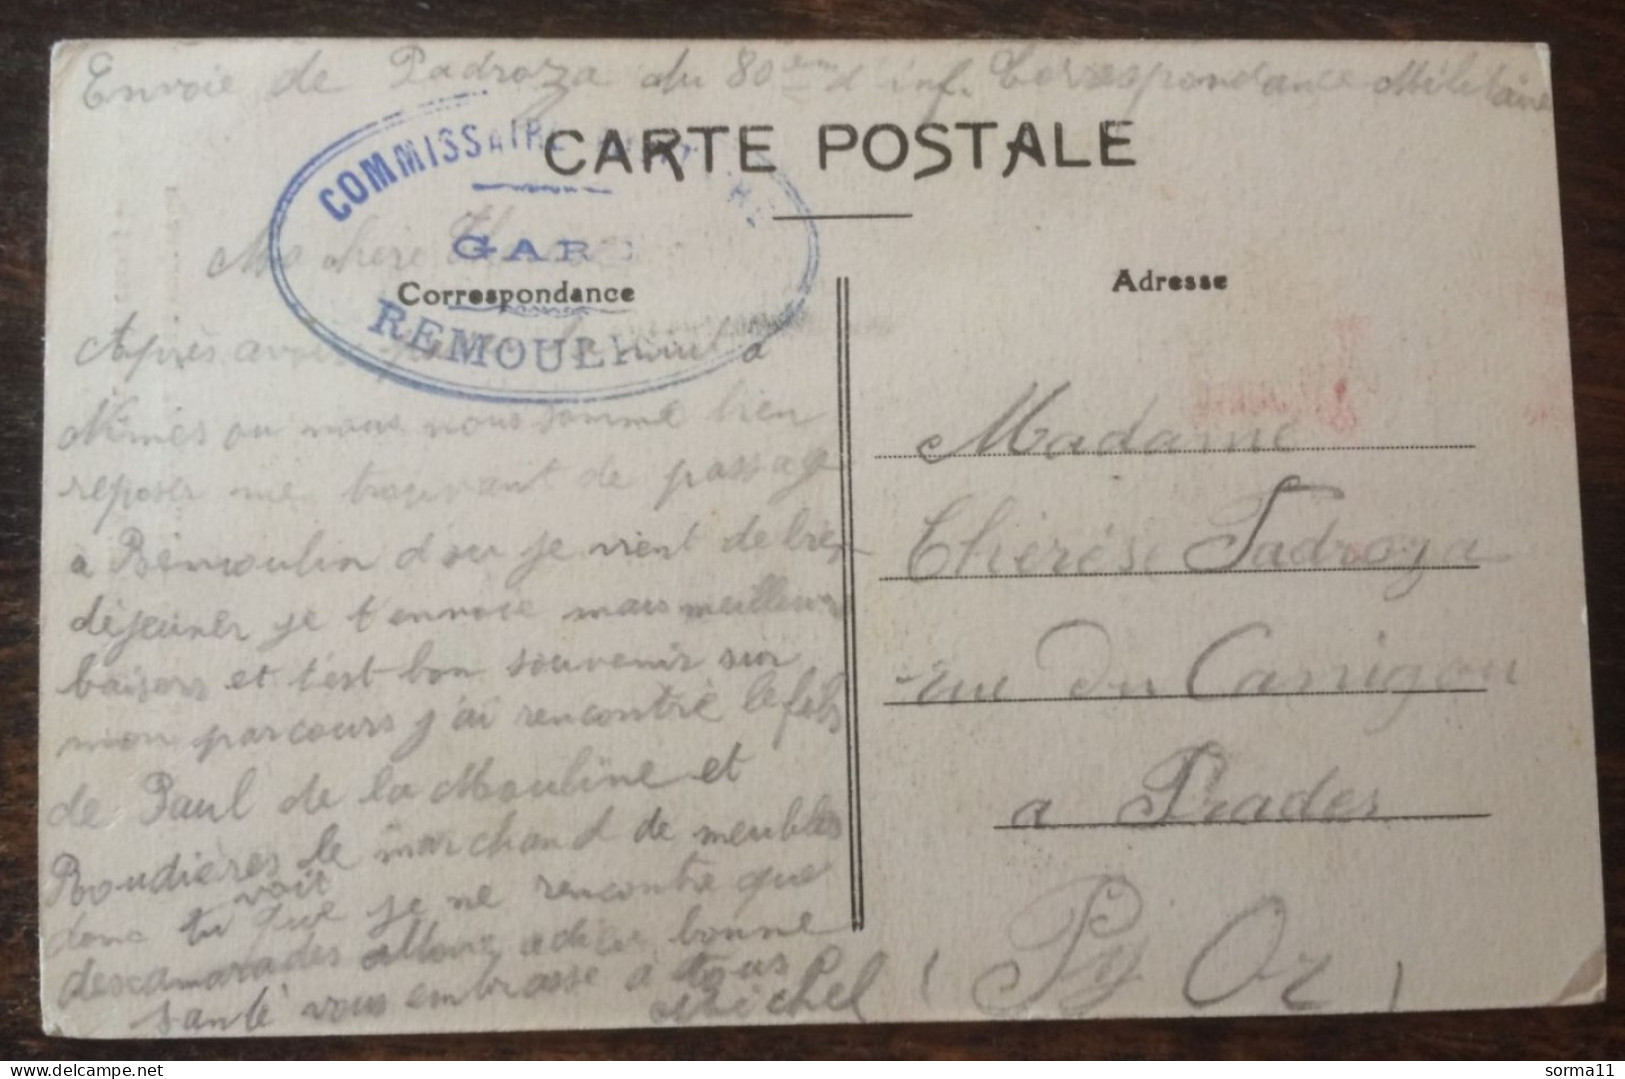 Envoie de Padroza du 80 eme d'inf. Correspondance Militaire
CARTE POSTALE
COMMISSAIRE
GARE
REMOULINS
Ma chère
Correspondance
Adresse
Après avoir à
Nîmes ou nous nous somme bien
reposer me trouvant de passage
a Rémoulin d'ou je vient de bien
déjeuner je t'envoie mais meilleurs
baisers et t'est bon souvenir sur
mon parcours j'ai rencontré le fils
de Paul de la Mouline et
Boudières le marchand de meubles
donc tu voit que je ne rencontre que
des camarades allons adieu bonne
santé vous embrasse à tous
Michel
Madame
Thérèse Padroza
rue du Canigou
a Prades
(Py Or)
sorma11